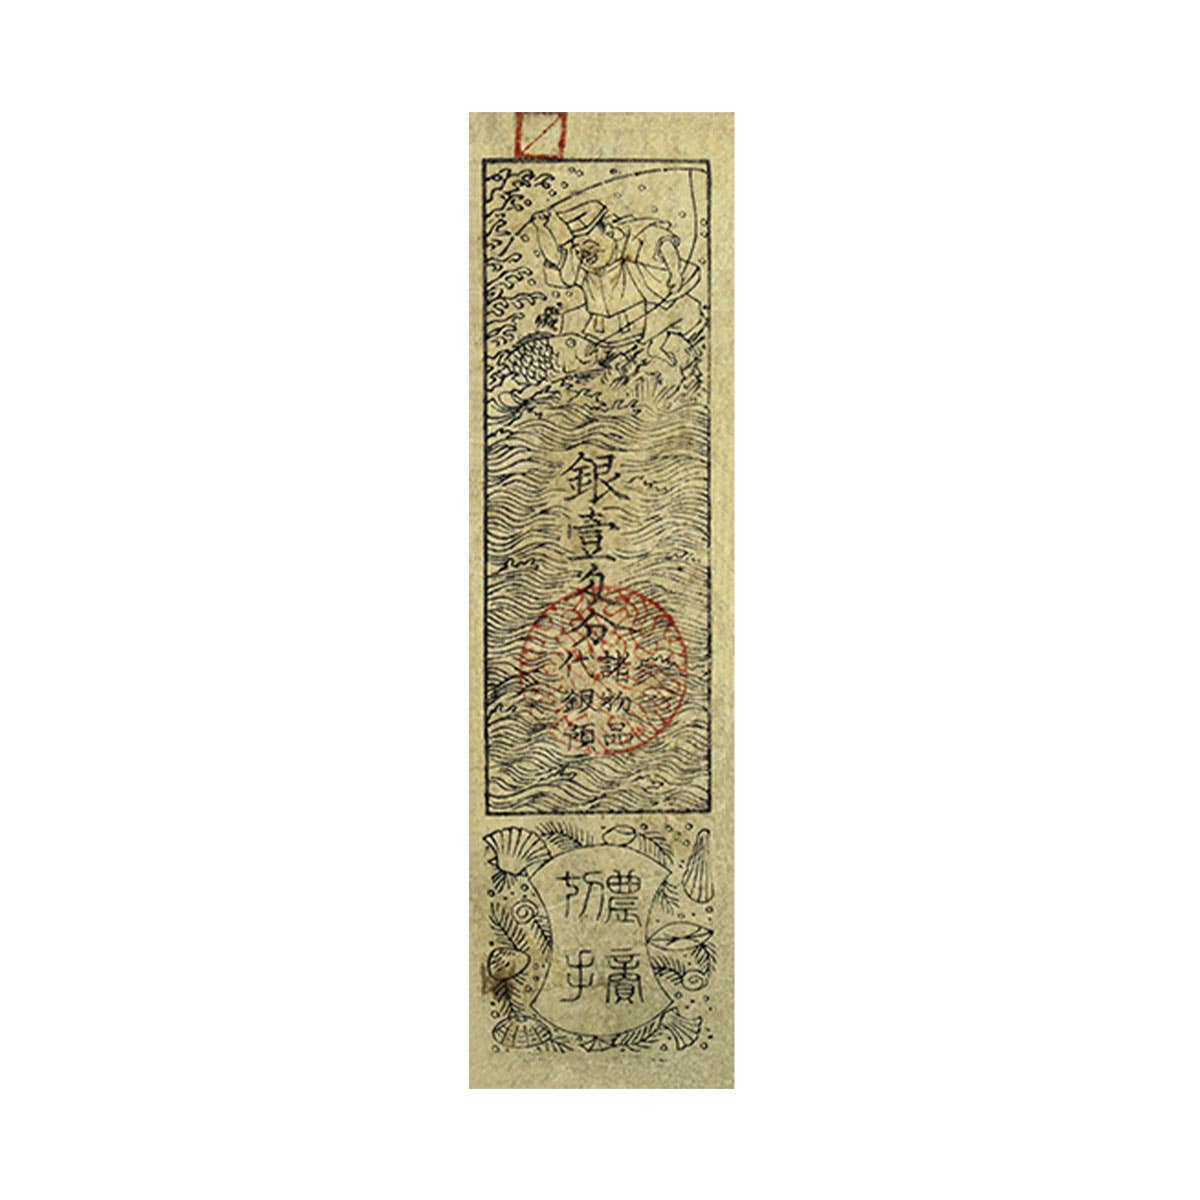 一銀壹匁分
諸物品
代銀預
農
切手